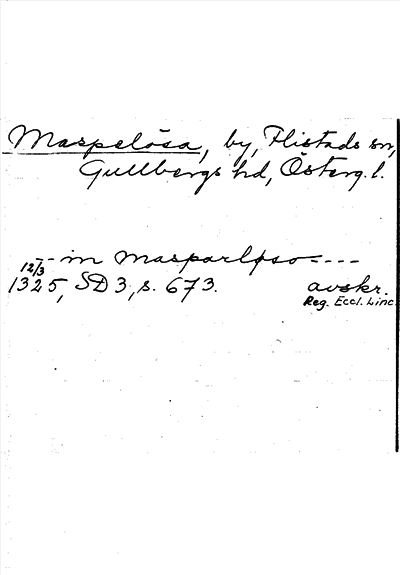 Maspelösa, by, Flistads sn,
Gullbergs hd, Österg. l.
-- in masparløso ----
12/3 1325, SD 3, s. 673. avskr.
Reg. Eccl. Linc.